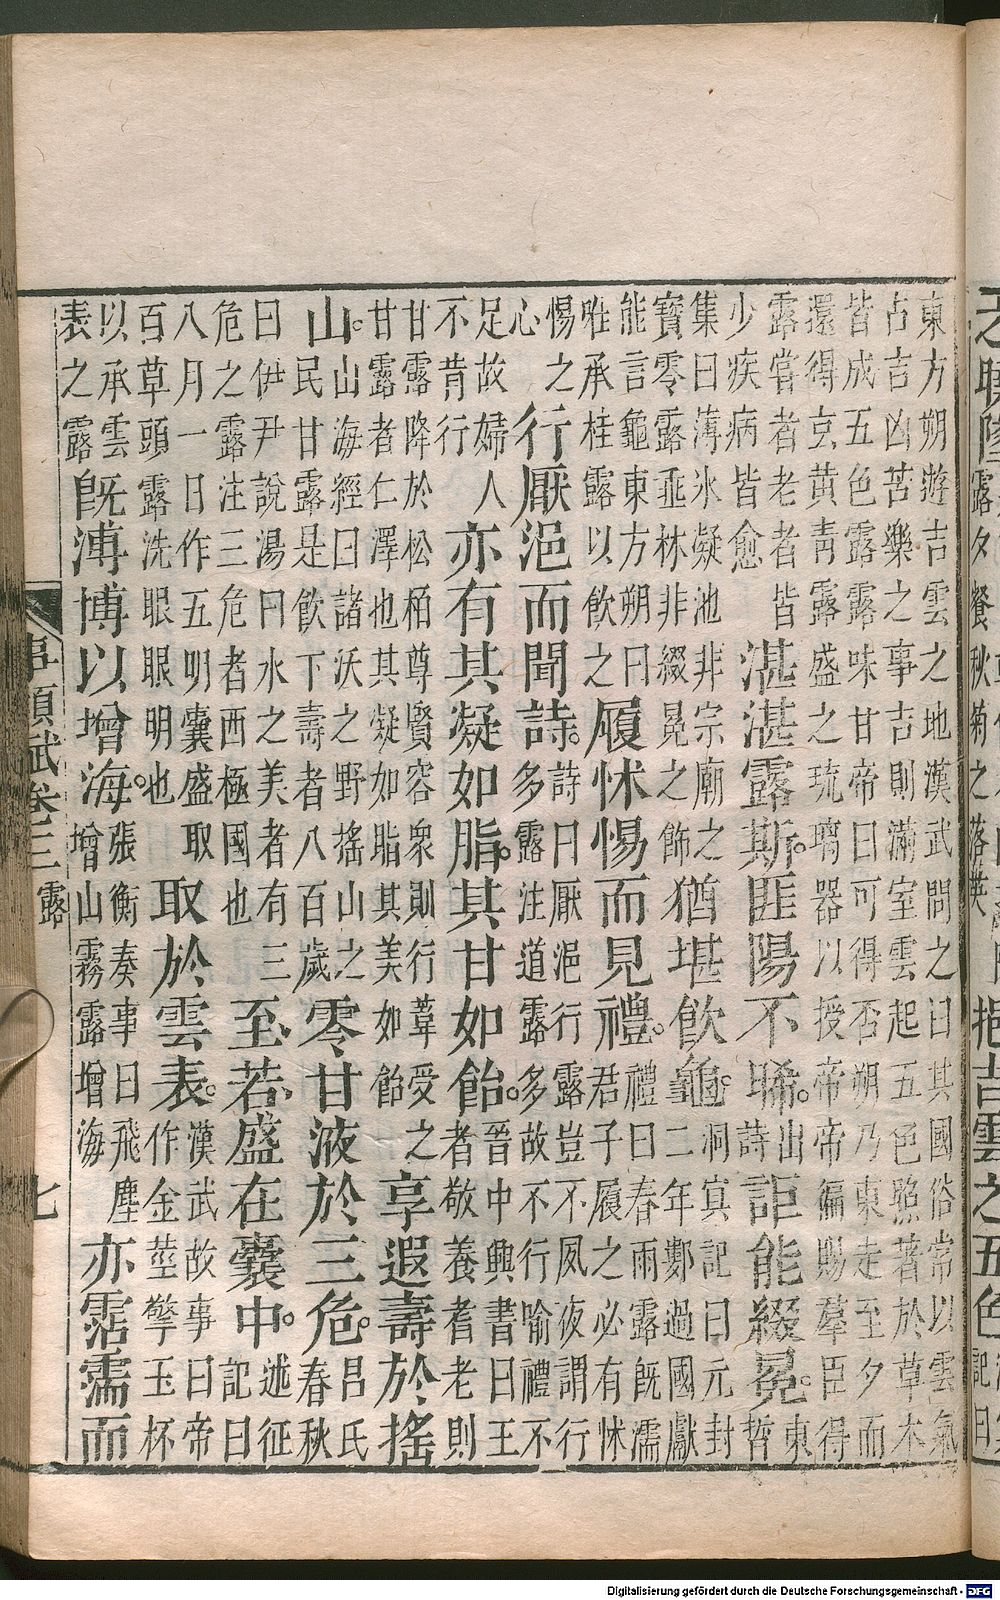 東方朔遊吉雲之地漢武問之曰其國俗常以雲氣
占吉凶苦樂之事吉則滿室雲起五色照著於草木
皆成五色露露味甘帝曰可得否朔乃東走至夕而
還得玄黃青露盛之琉璃器以授帝帝徧賜羣臣得
露嘗者老者皆
少疾病皆愈
湛湛露斯。匪陽不晞。
出
詩
詎能綴冕。
東
晳
集曰薄氷凝池非宗廟之
寶零露垂林非綴冕之飾
猶堪飲龜。
洞冥記曰元封
二年鄭過國獻
能言龜東方朔曰
唯承桂露以飲之
履怵惕而見禮。
禮曰春雨露旣濡
君子履之必有怵
惕之
心
行厭浥而聞詩。
詩曰厭浥行露豈不夙夜謂行
多露注道露多故不行喻禮不
足故婦人
不肯行
亦有其凝如脂。其甘如飴。
晉中興書曰王
者敬養耆老則
甘露降於松柏尊賢容衆則行葦受之
甘露者仁澤也其凝如脂其美如飴
享遐壽於搖
山。
山海經曰諸沃之野搖山之
民甘露是飲下壽者八百歲
零甘液於三危。
呂氏
春秋
曰伊尹說湯曰水之美者有三
危之露注三危者西極國也
至若盛在囊中。
述征
記曰
八月一日作五明囊盛取
百草頭露洗眼眼明也
取於雲表。
漢武故事曰帝
作金莖擎玉杯
以承雲
表之露
旣溥博以增海。
張衡奏事曰飛塵
增山霧露增海
亦霑濡而
事類賦卷三 露 七
Digitalisierung gefördert durch die Deutsche Forschungsgemeinschaft - DFG